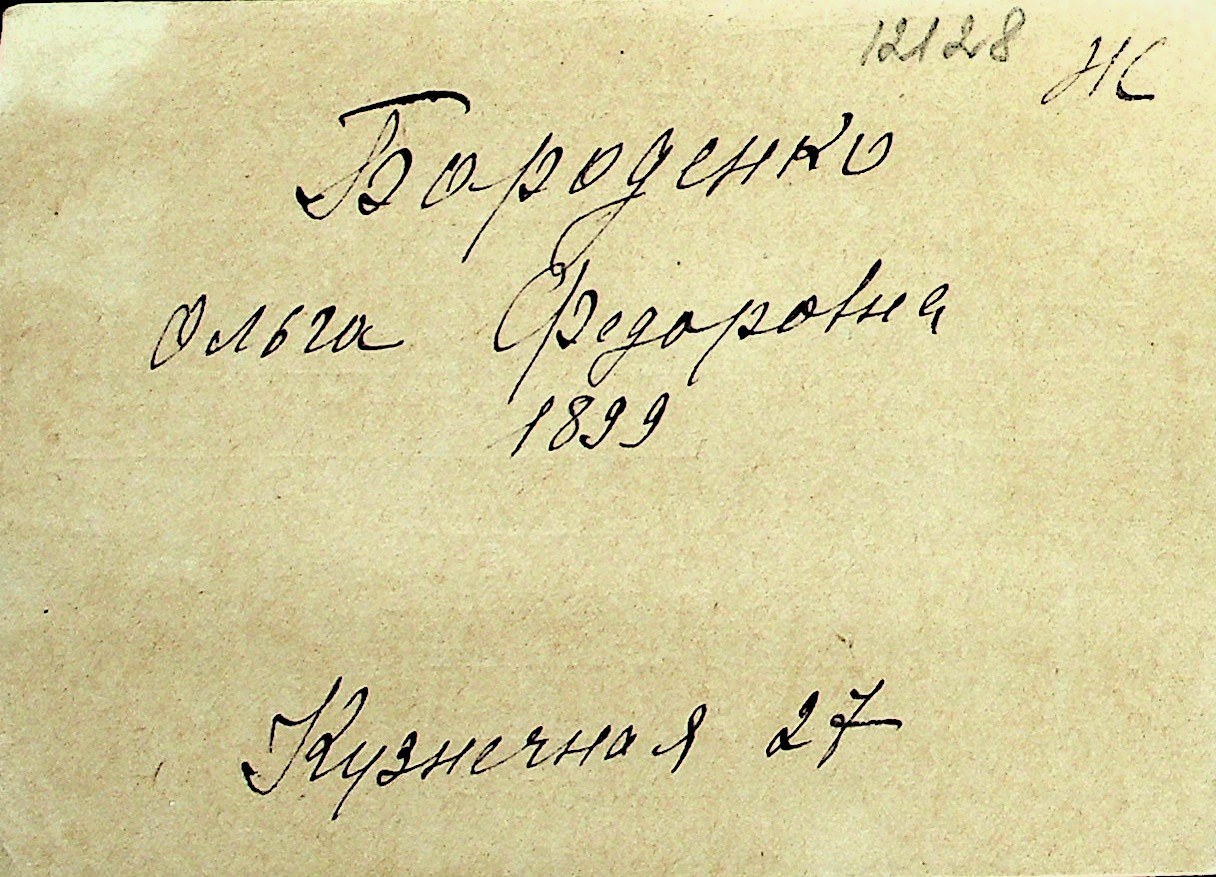 12128 Ж
Бороденко
Ольга Федоровна
1899
Кузнечная 27